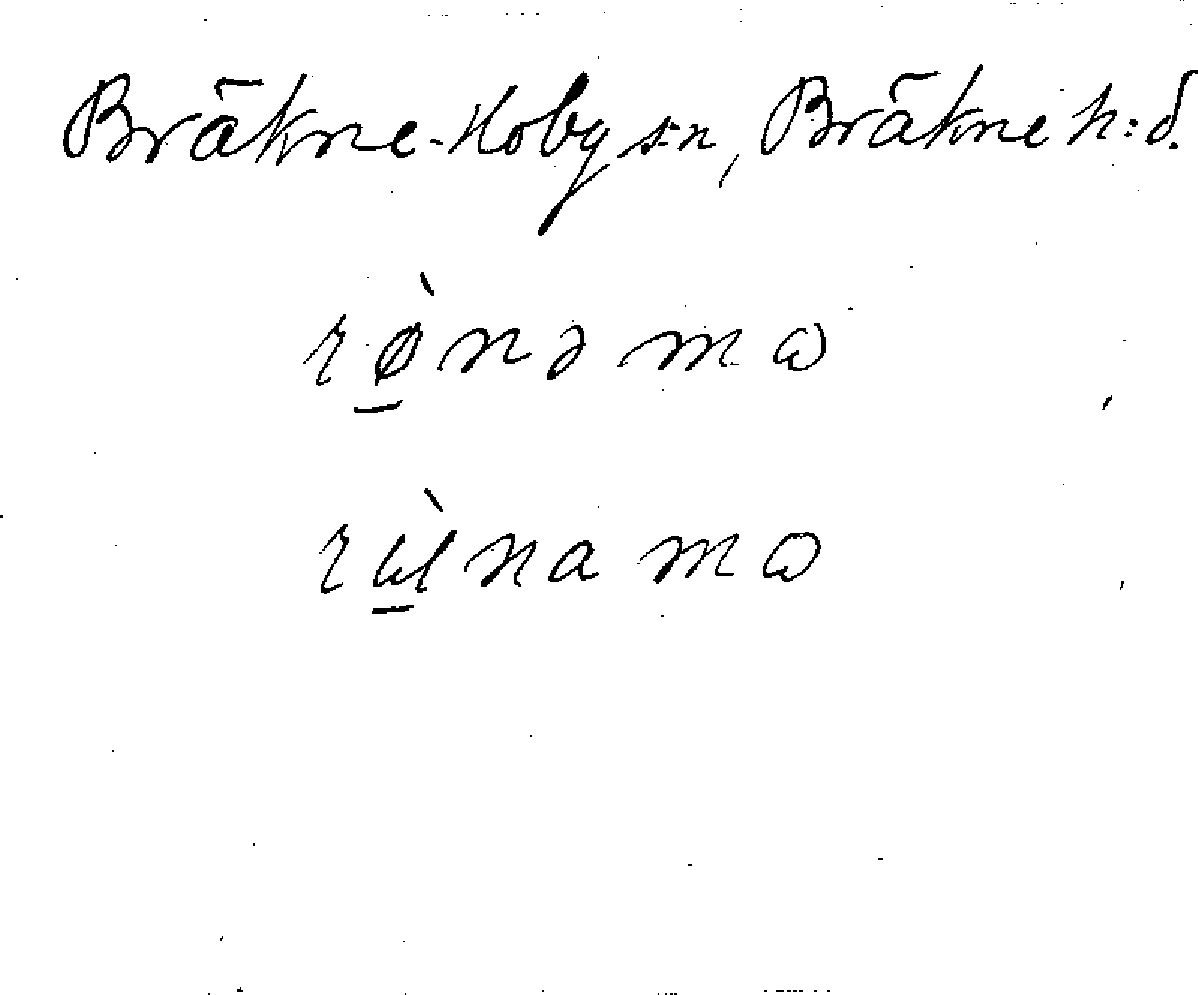 Bräkne-Hoby sn, Bräkne h:d.
rø̱̀nəmɷ
rɯ̱̀namɷ